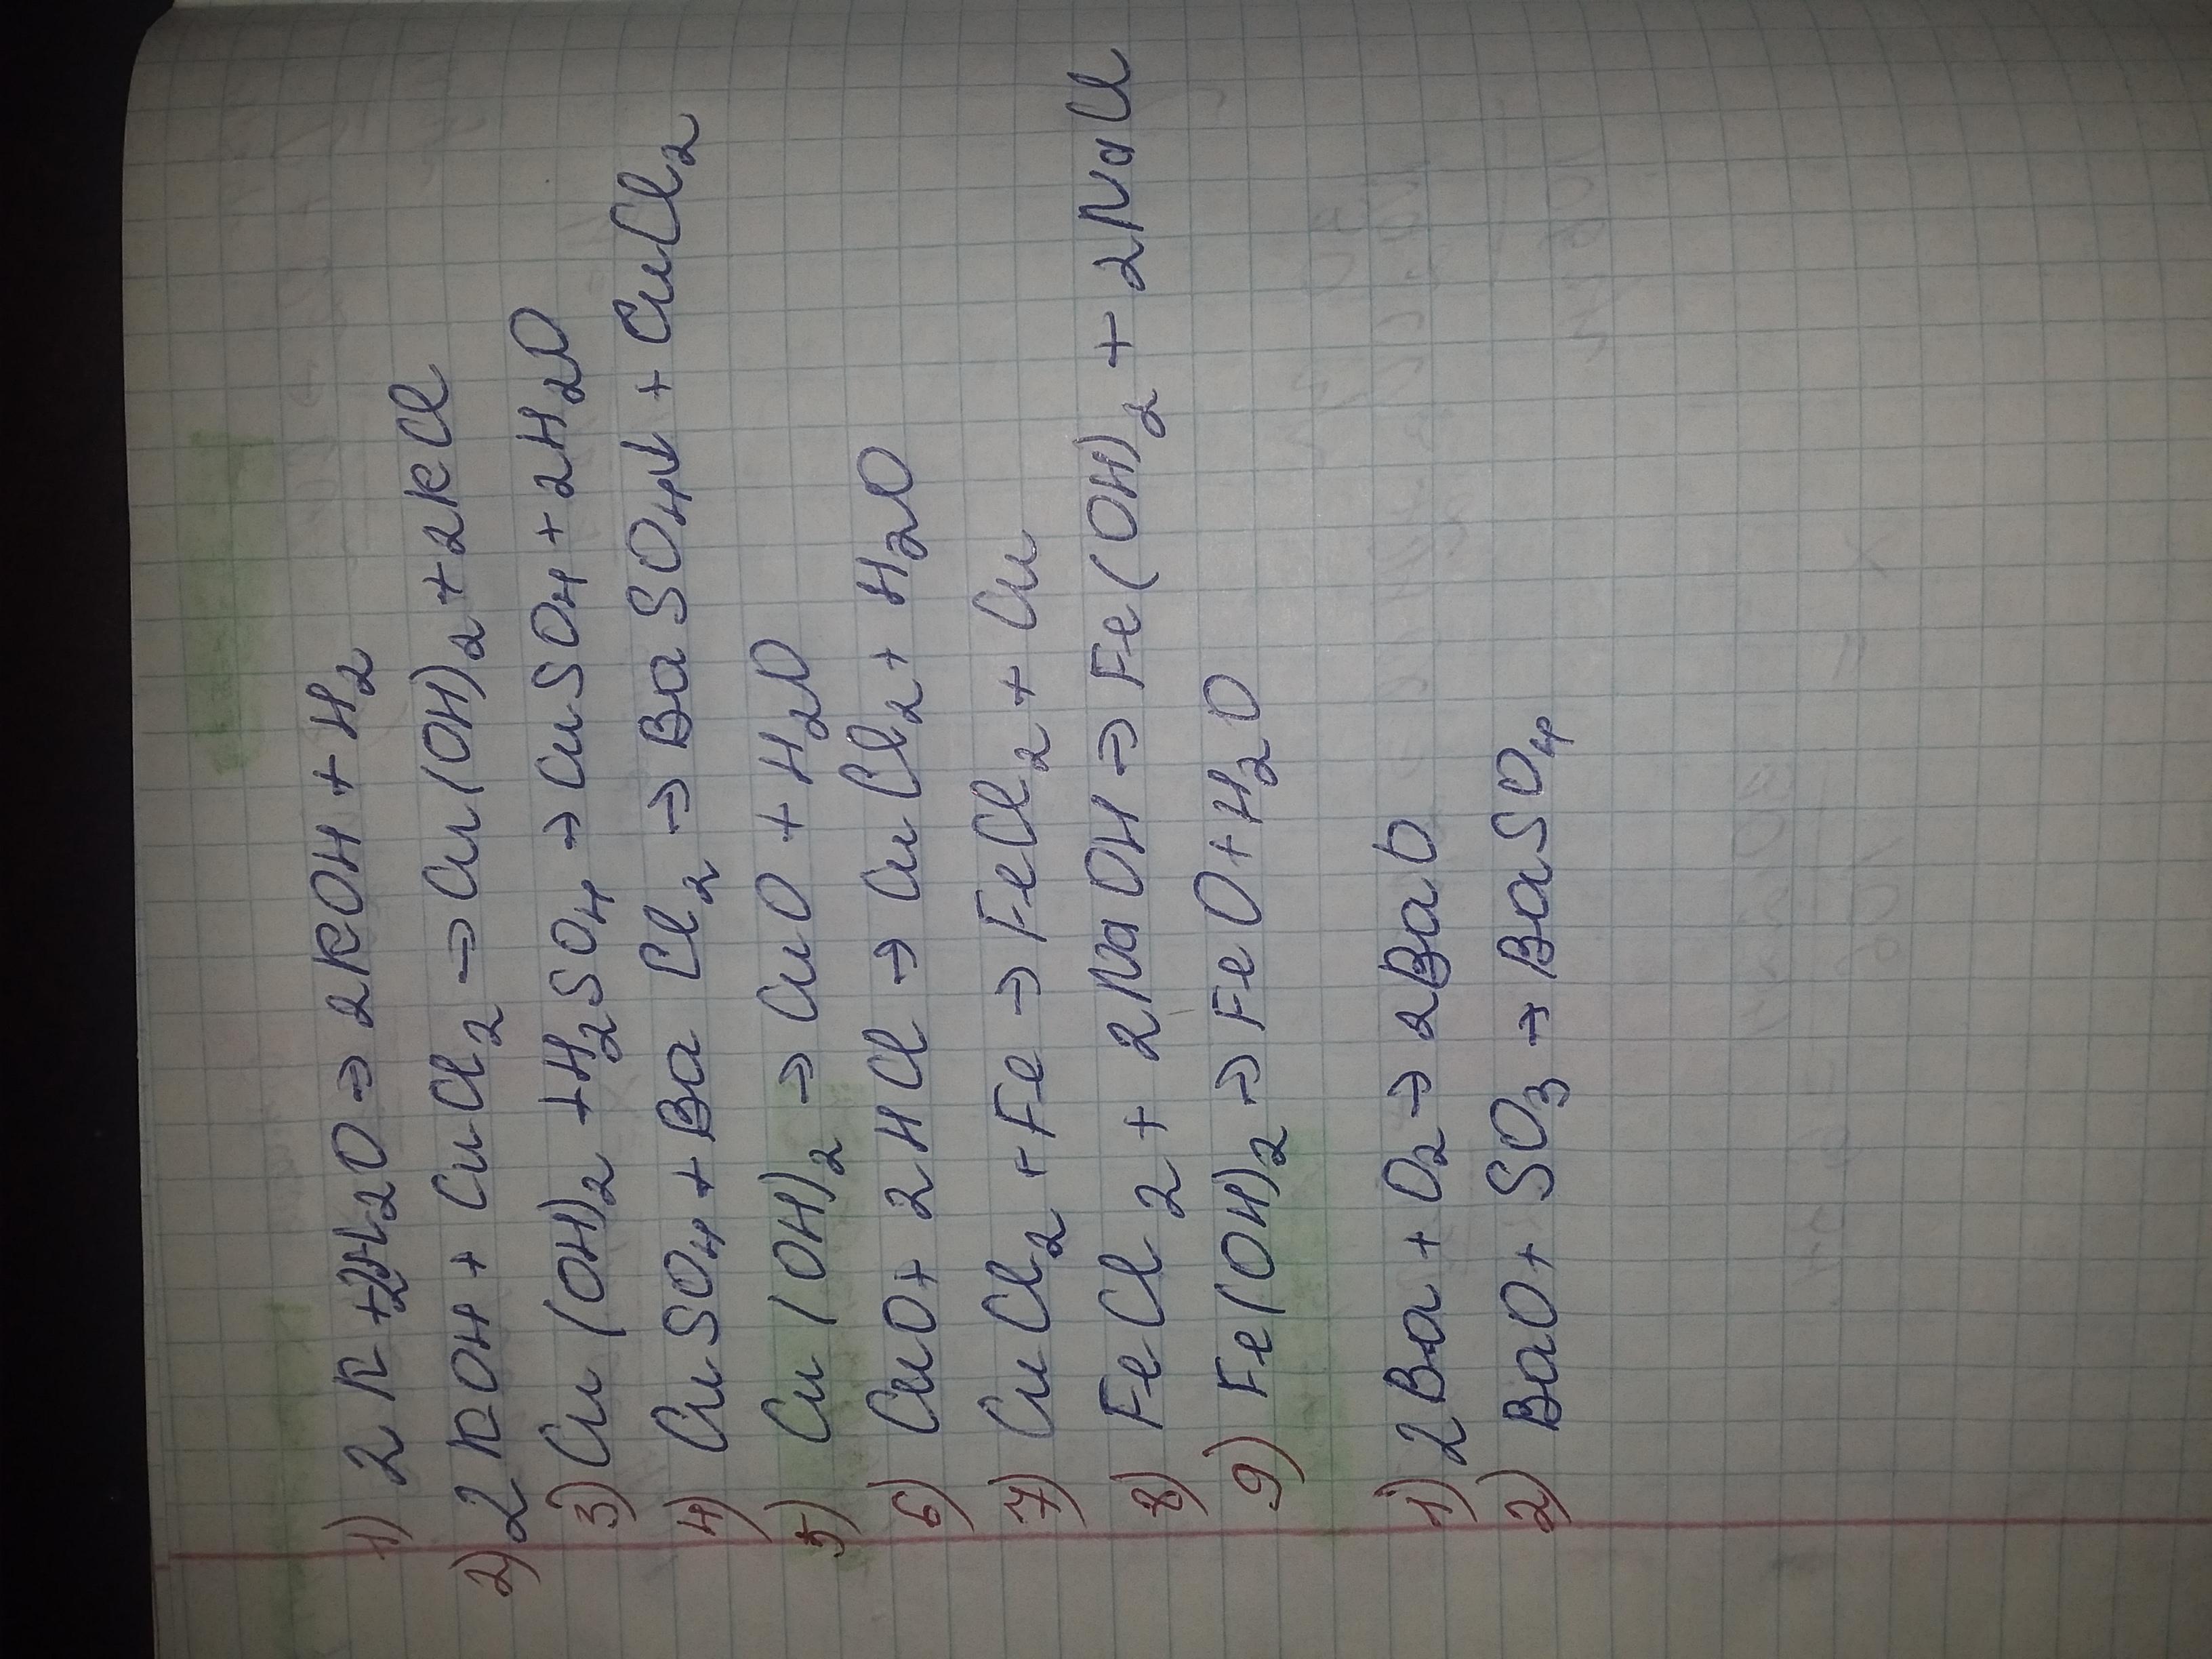 1) 2K + 2H₂O → 2KOH + H₂
2) 2KOH + CuCl₂ → Cu(OH)₂ + 2KCl
3) Cu(OH)₂ + H₂SO₄ → CuSO₄ + 2H₂O
4) CuSO₄ + BaCl₂ → BaSO₄↓ + CuCl₂
5) Cu(OH)₂ → CuO + H₂O
6) CuO + 2HCl → CuCl₂ + H₂O
7) CuCl₂ + Fe → FeCl₂ + Cu
8) FeCl₂ + 2NaOH → Fe(OH)₂ + 2NaCl
9) Fe(OH)₂ → FeO + H₂O
1) 2Ba + O₂ → 2BaO
2) BaO + SO₃ → BaSO₄